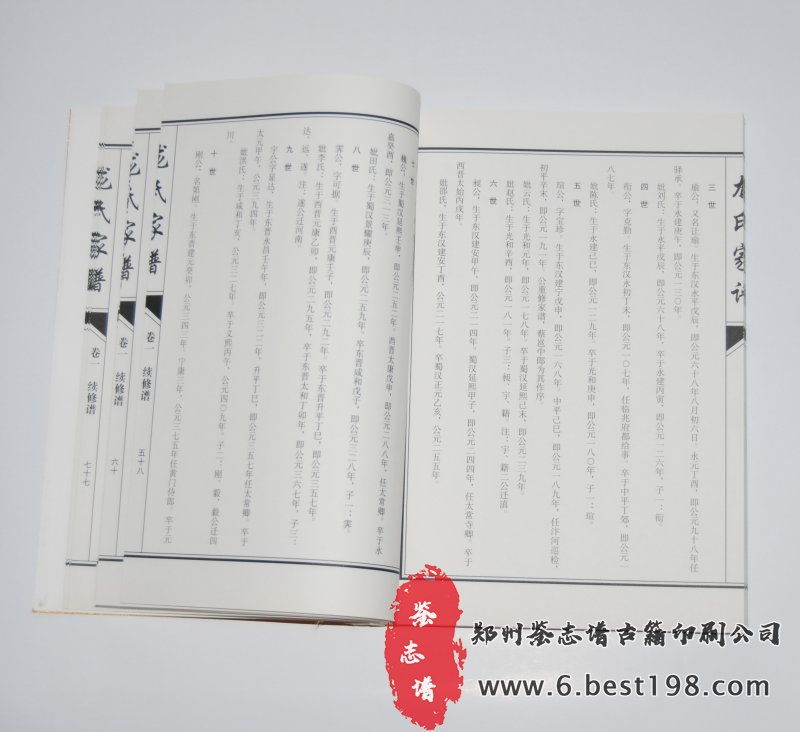 三世
瑜公，又名让瑜，生于东汉永平戊辰，即公元六十八年八月初六日，永元丁酉，即公元九十八年任
驿承。卒于永建庚午，即公元一三〇年。
妣刘氏：生于永平戊辰，即公元六十八年，卒于永建丙寅，即公元一二六年，子一：衔。
四世
衔公，字克勤，生于东汉永初丁未，即公元一〇七年，任临兆府都给事，卒于中平丁卯，即公元一
八七年。
妣陈氏：生于永建己巳，即公元一二九年，卒于光和庚申，即公元一八〇年，子一：瑄。
五世
瑄公，字宝珍。生于东汉建宁戊申，即公元一六八年，中平己巳，即公元一八九年，任汴河巡检，
初平辛未，即公元一九一年，公重修家谱，蔡邕中郎为其作序。
妣云氏：生于光和元年，即公元一七八年，卒于蜀汉延熙己未，即公元二三九年。
妣赵氏：生于光和辛酉，即公元一八一年。子三：昶、宇、籍 注：宇、籍二公迁滇。
六世
昶公，生于东汉建安甲午，即公元二一四年，蜀汉延熙甲子，即公元二四四年，任太常寺卿。卒于
西晋太始丙戌年。
妣邵氏：生于东汉建安丁酉，公元二一七年。卒蜀汉正元乙亥，公元二五五年。
七世
公，生于蜀汉延熙壬申，即公元二五二年。西晋太康戊申，即公元二八八年，任太常卿。卒于永
嘉癸酉，即公元三一三年。
妣田氏：生于蜀汉景耀庚辰，即公元二五九年。卒东晋咸和戊子，即公元三二八年，子一：霁。
八世
霁公，字可据，生于西晋元康壬子，即公元二九二年，卒于东晋升平丁巳，即公元三五七年。
妣李氏：生于西晋元康乙卯，即公元二九五年，卒于东晋太和丁卯年，即公元三六七年，子三：
达、远、遂 注：遂公迁河南。
九世
字公字显达，生于东晋永昌壬午年，即公元三二二年，升平丁巳，即公元三五七年任太常卿。卒于
太元甲午，公元三九四年。
妣洪氏：生于咸和丁亥，公元三二七年。卒于义熙丙午，公元四〇九年。子二：刚、毅，毅公迁四
川。
十世
刚公：名第刚，生于东晋建元癸卯，公元三四三年，宁康三年，公元三七五年任黄门侍郎。卒于元
氏家谱
卷一
续修谱
五十八
氏家谱
卷一
续修谱
六十
氏家谱
卷一
续修谱
七十七
鉴志谱
郑州鉴志谱古籍印刷公司
www.6.best198.com